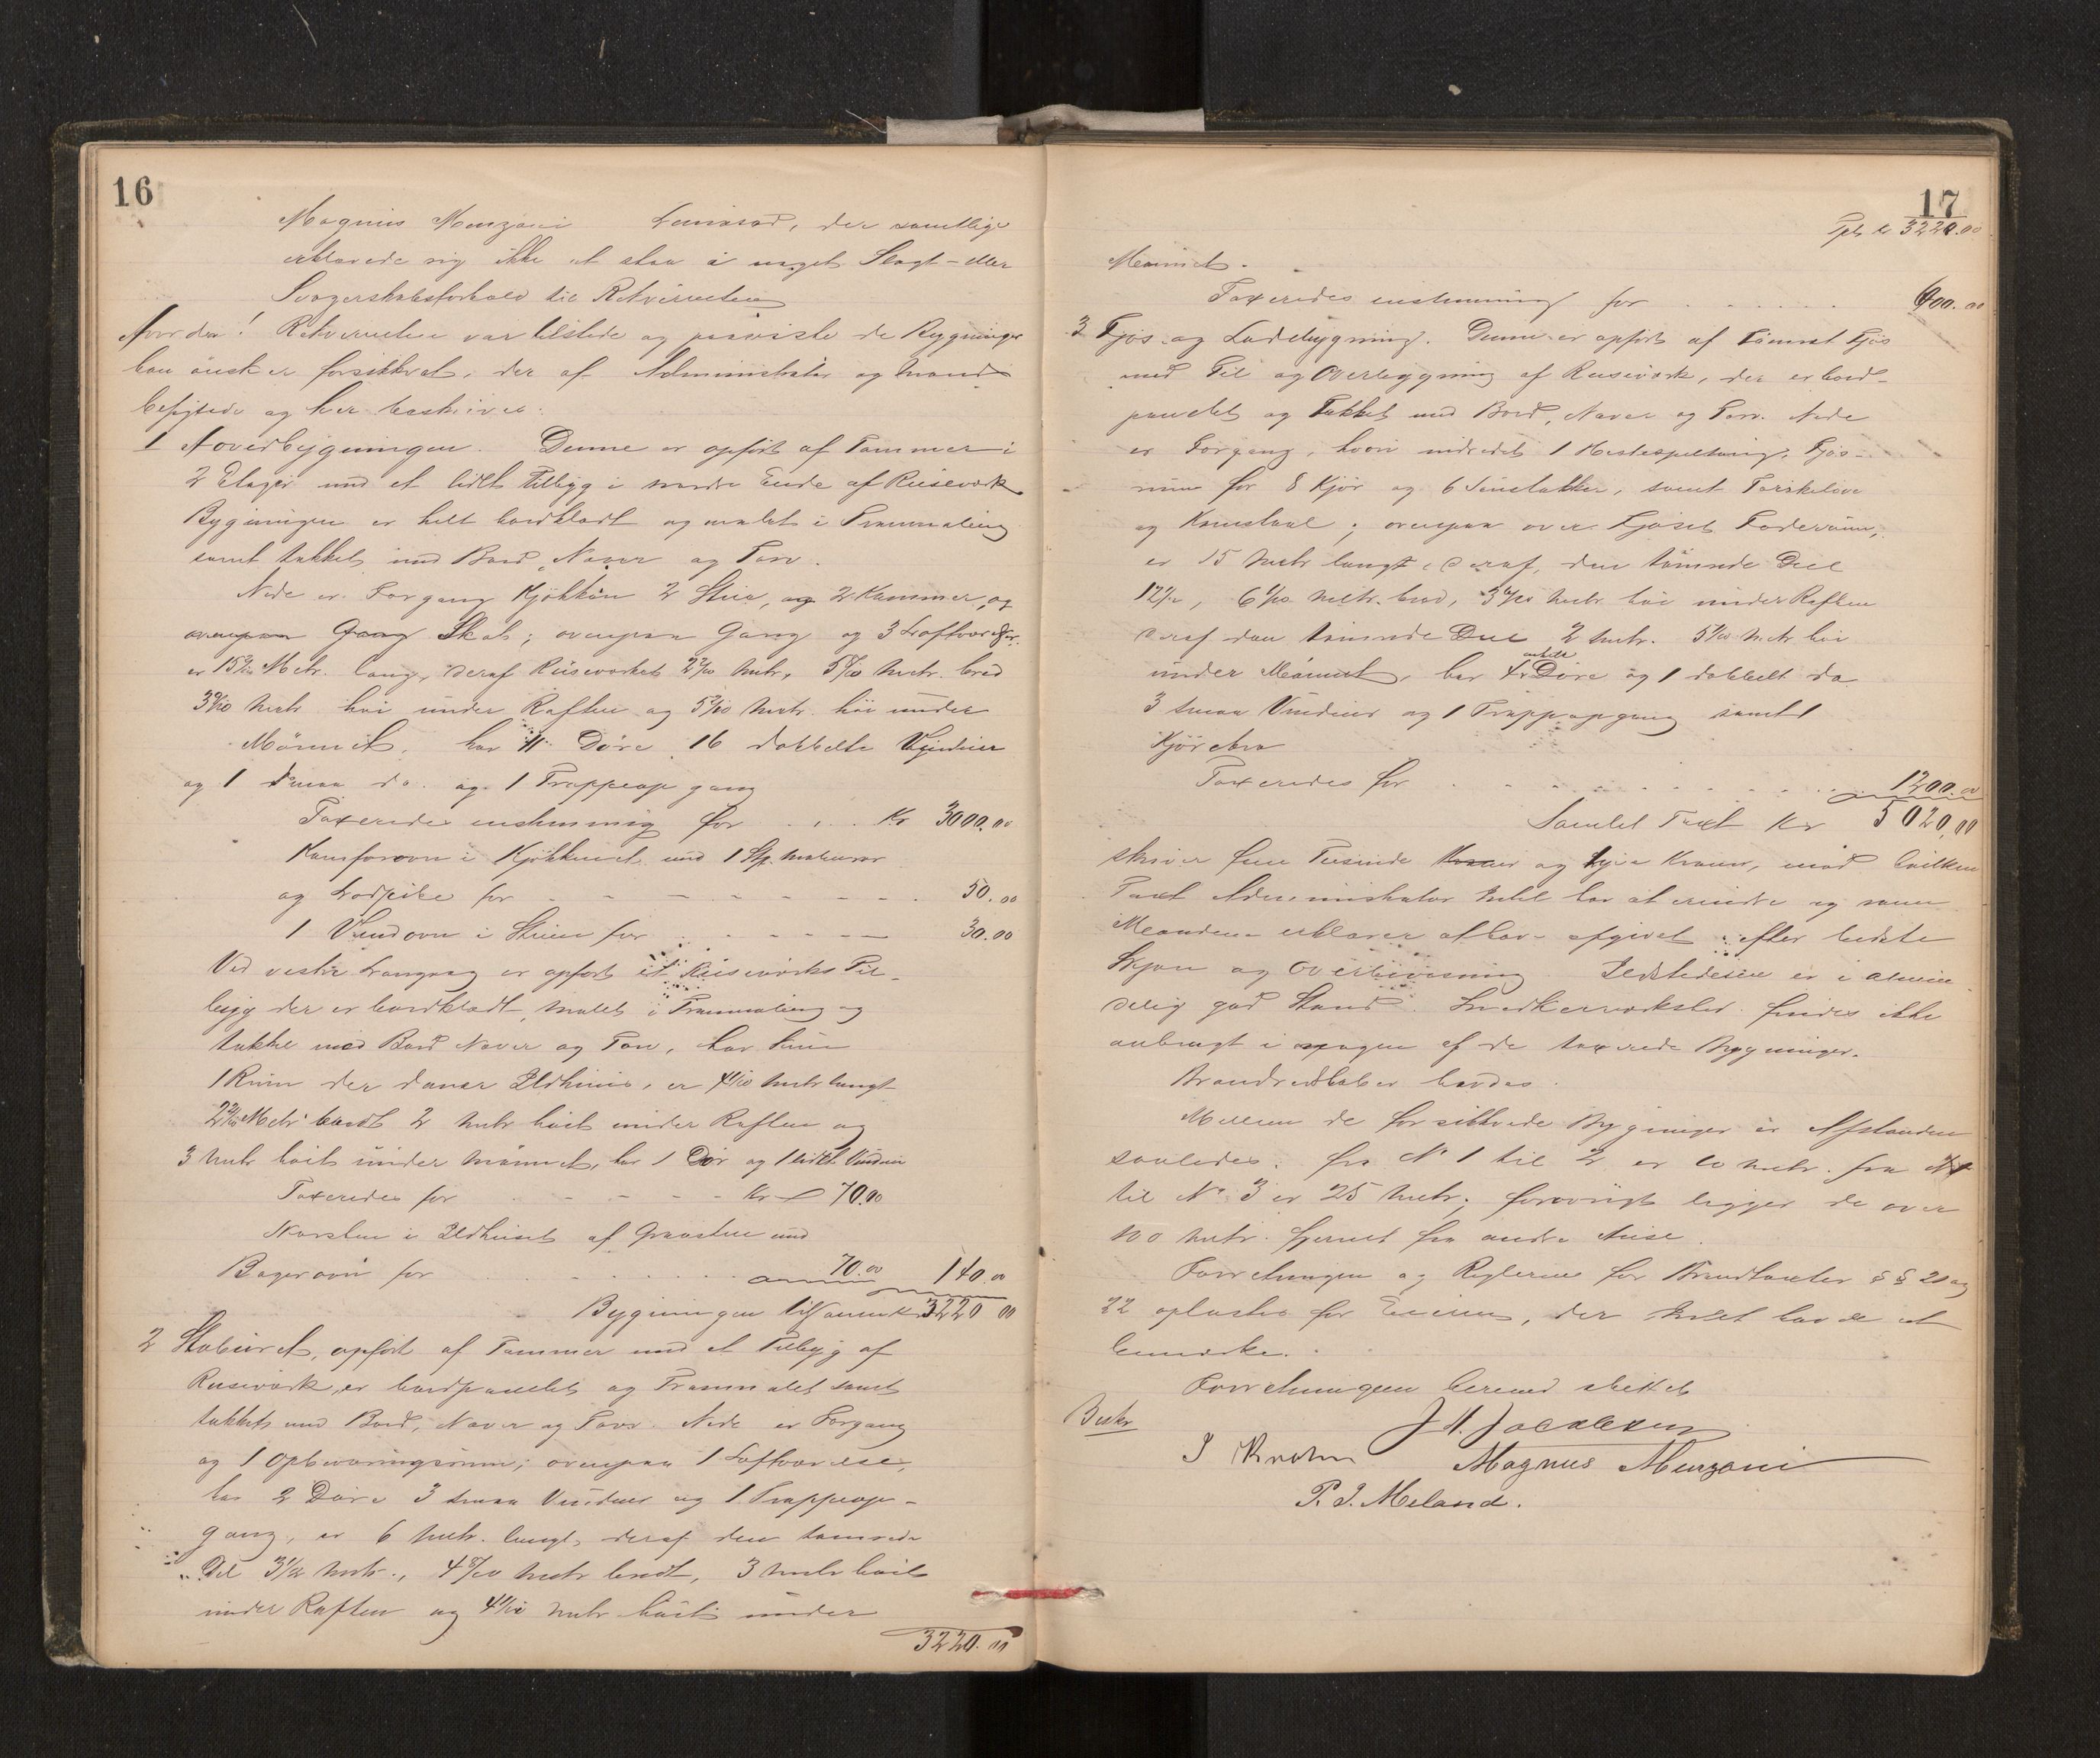 16
Magnus Menzoni Lauvsød, der samtlige
erklærede sig ikke at staa i noget Slægt- eller
Svogerskabsforhold til Rekvirenten
Hvorda! Rekvirenten var tilstede og paaviste de Bygninger
han ønsker forsikkret, der af Administrator og Mænd
besigtedes og her beskrives.
1 Hovedbygningen. Denne er opført af Tømmer i
2 Etager med et lidet Tilbyg i nordre Ende af Reisværk
Bygningen er helt bordklædt og malet i Tranmaling
samt tækket med Bord, Næver og Torv.
Nede er Forgang Kjøkken 2 Stuer, og 2 Kammer, og
Skab; ovenpaa Gang og 3 Loftværelser
er 15 Metr. lang, deraf Reisværket 2 Metr, 5 Metr. bred
3 Metr høi under Raften og 5 Metr. høi under
Mønnet, har 11 Døre 16 dobbelte Vinduer
og 1 smaa do. og 1 Trappeopgang
Taxeredes enstemmig for . . . Kr 3000.00
Komfurovn i Kjøkkenet med 1 Stp. Murrør
og Lodpibe for - - - - - - - 50.00
1 Vindovn i Stuen for - - - - - 30.00
Ved vestre Langvæg er opført et Reisværks Til-
bygg der er bordklædt, malet i Tranmaling og
tækket med Bord Næver og Torv, har kun
1 Rum der danner Ildhus, er 4 1/10 Metr langt
2 Metr bredt 2 Metr høit under Raften og
3 Metr høit under Mønnet, har 1 Dør og 1 lidet Vindue
Taxeredes for - - - - Kr 70.00
Skorsten i Ildhuset af Graasten med
Bagerovn for . . . . . 70.00 140.00
Bygningen tilsammen Kr 3220 00
2 Staburet, opført af Tømmer med et Tilbyg af
Reisværk, er bordpanelet og Tranmalet samt
tækket med Bord, Næver og Torv. Nede er Forgang
og 1 Opbevaringsrum; ovenpaa 1 Loftværelse,
har 2 Døre 3 smaa Vinduer og 1 Trappeop-
gang, er 6 Metr. langt, deraf den tømrede
Del 3 1/2 Metr., 4 8/10 Metr bredt, 3 Metr høit
under Raften og 4 1/10 Metr høit under
3220.00
17
Tpt kr 3220.00
Mønnet.
Taxeredes enstemmig for . . . . . 600.00
3 Fjøs og Ladebygning. Denne er opført af Tømret Fjøs
med Til og Overbygning af Reisværk, der er bord-
panelet og Tækket med Bord, Næver og Torv. Nede
er Forgang, hvori indredet 1 Hestespiltaug, Fjøs-
rum for 8 Kjør og 6 Smaafækker, samt Tærskelove
og Kornstaal; ovenpaa over Fjøset Foderrum,
er 15 Metr langt, deraf, den tømrede Del
12 1/2, 6 1/10 Metr. bred, 3 Metr høi under Raften
deraf den tømrede Del 2 Metr. 5 Metr høi
under Mønnet, har 4 enkelte Døre og 1 dobbelt do
3 smaa Vinduer og 1 Trappopgang samt 1
Kjørebro
Taxeredes for . . . . . . . 1200.00
Samlet Taxt Kr 5020,00
skriver fem Tusinde og tyve Kroner, mod hvilken
Taxt Administrator Intet har at erindre og som
Mændene erklærer at have afgivet efter bedste
Skjøn og Overbevisning Ildstederne er i almin-
delig god Stand. Snedkerværksted findes ikke
anbragt i nogen af de taxerede Bygninger.
Brandredskaber havdes.
Mellem de forsikkrede Bygninger er Afstanden
saaledes: fra No 1 til 2 er 10 Metr. fra No 1
til No 3 er 25 Metr; forøvrigt ligger de over
100 Metr. fjernet fra andre Huse.
Forretningen og Reglerne for Brandtaxter §§ 21 og
22 oplæstes for Eieren, der Intet havde at
bemærke.
Forretningen hermed sluttet
Beskr J M. Jacobsen
J Krohn Magnus Menzoni
P. J. Meland.